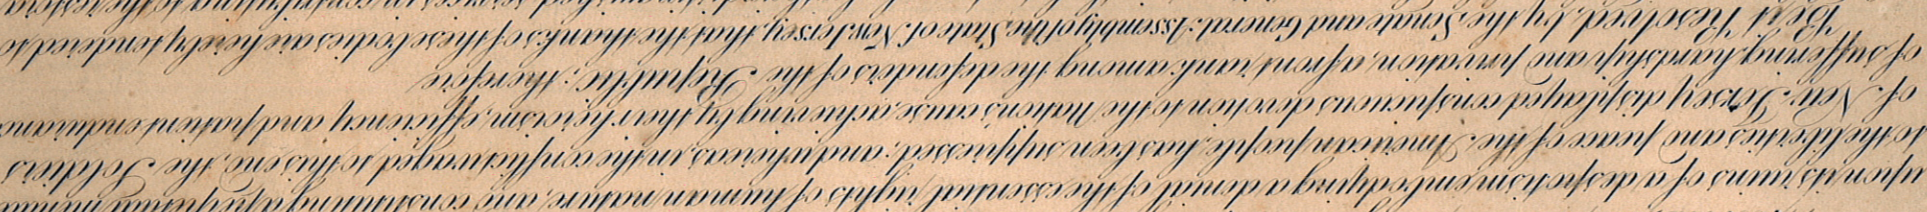 upon its ruins of a despotism embodying a denial of the essential rights of human nature, and constituting a perpetual
to the liberties and peace of the American people, has been suppressed; and whereas, in the conflict waged to this end, the Soldiers
of New Jersey displayed conspicuous devotion to the Nation's cause, achieving by their heroism, efficiency and patient enduranc
of suffering, hardship and privation, a front rank among the defenders of the Republic; therefore
Be it Resolved, by the Senate and General Assembly of the State of New Jersey, that the thanks of these bodies are hereby tendered to
services in contributing to the